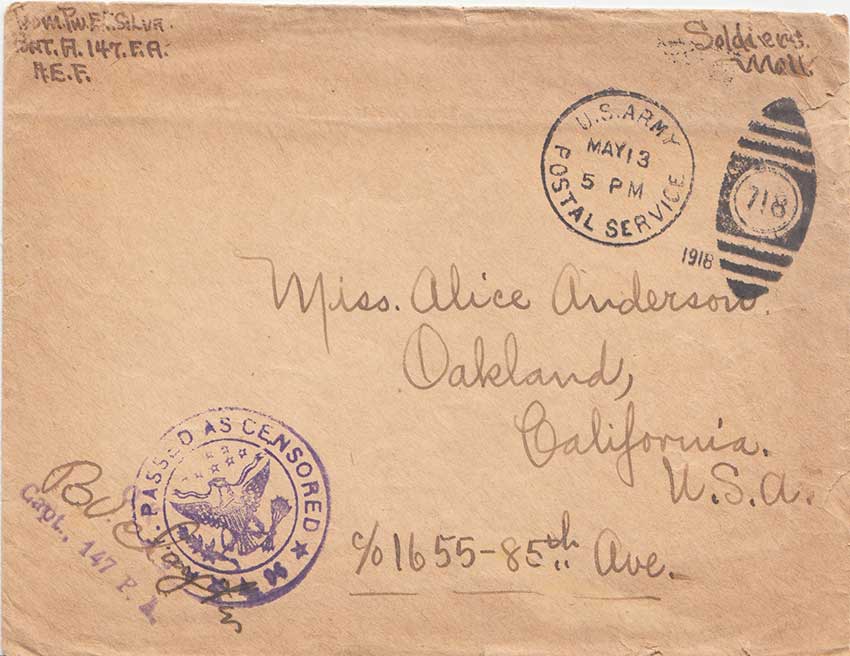 From Pvt. F. Silva.
Bat. A. 147. F.A.
A.E.F.
Soldiers
Mail.
U.S. ARMY
MAY 13
5 PM
POSTAL SERVICE
718
1918
Miss. Alice Anderson.
Oakland,
California.
U.S.A.
c/o 1655-85th Ave.
PASSED AS CENSORED
Capt., 147 F. A.